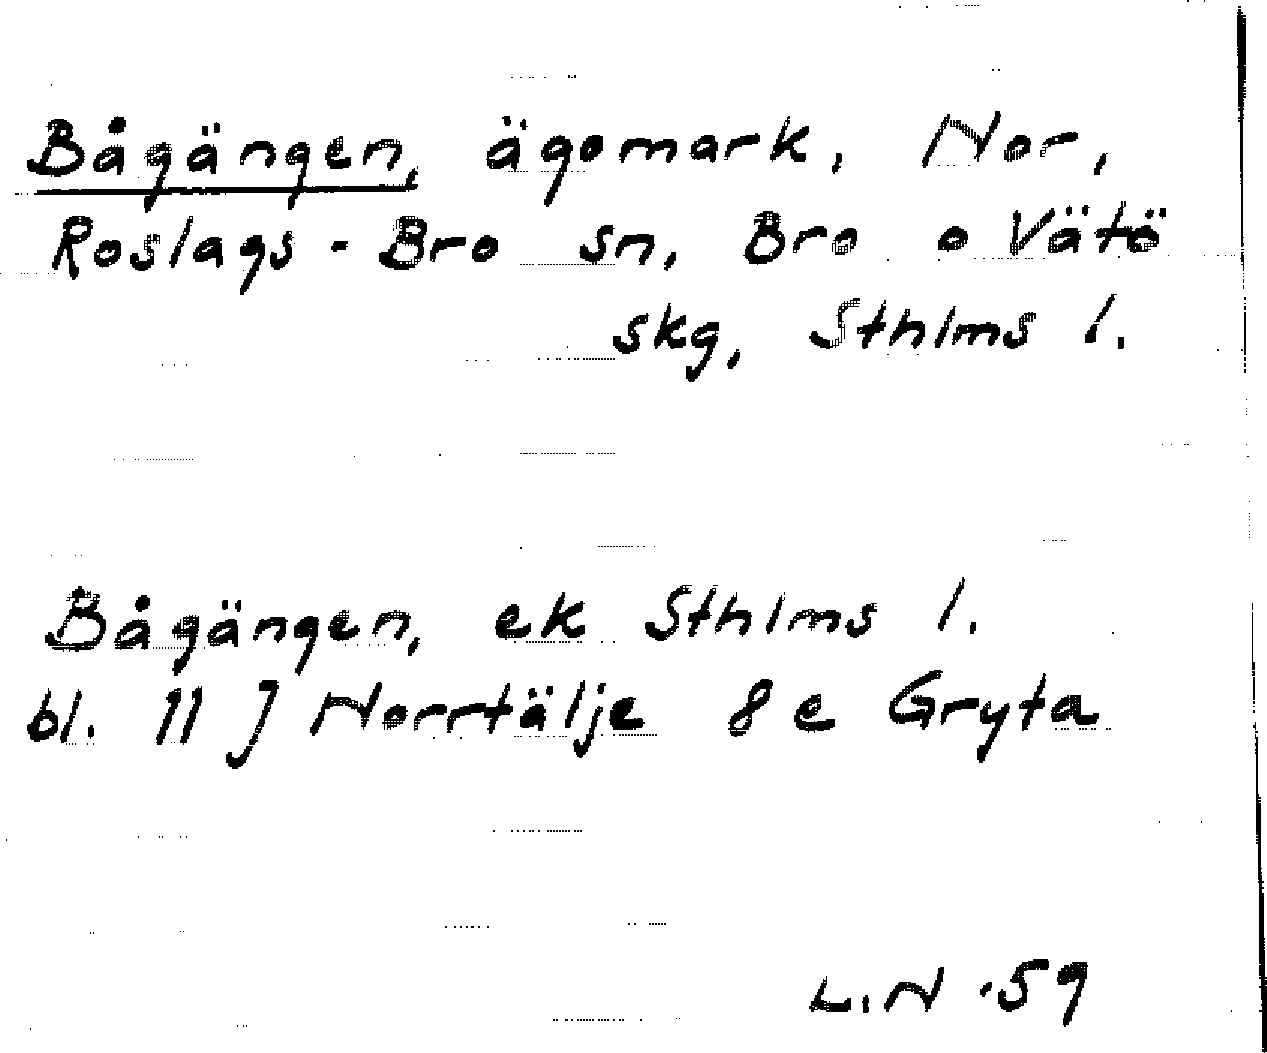 Bågängen, ägomark, Nor,
Roslags-Bro sn, Bro o Vätö
skg, Sthlms l.
Bågängen, ek Sthlms l.
bl. 11 J Norrtälje 8 e Gryta
L.N .59